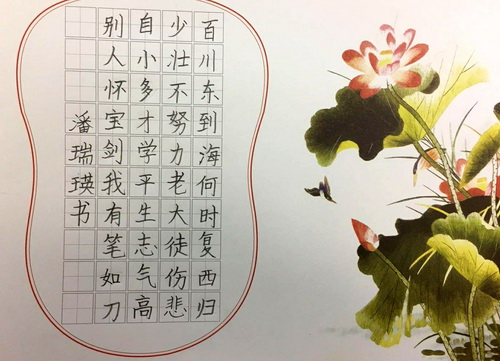 百川东到海何时复西归
少壮不努力老大徒伤悲
自小多才学平生志气高
别人怀宝剑我有笔如刀
潘瑞瑛书